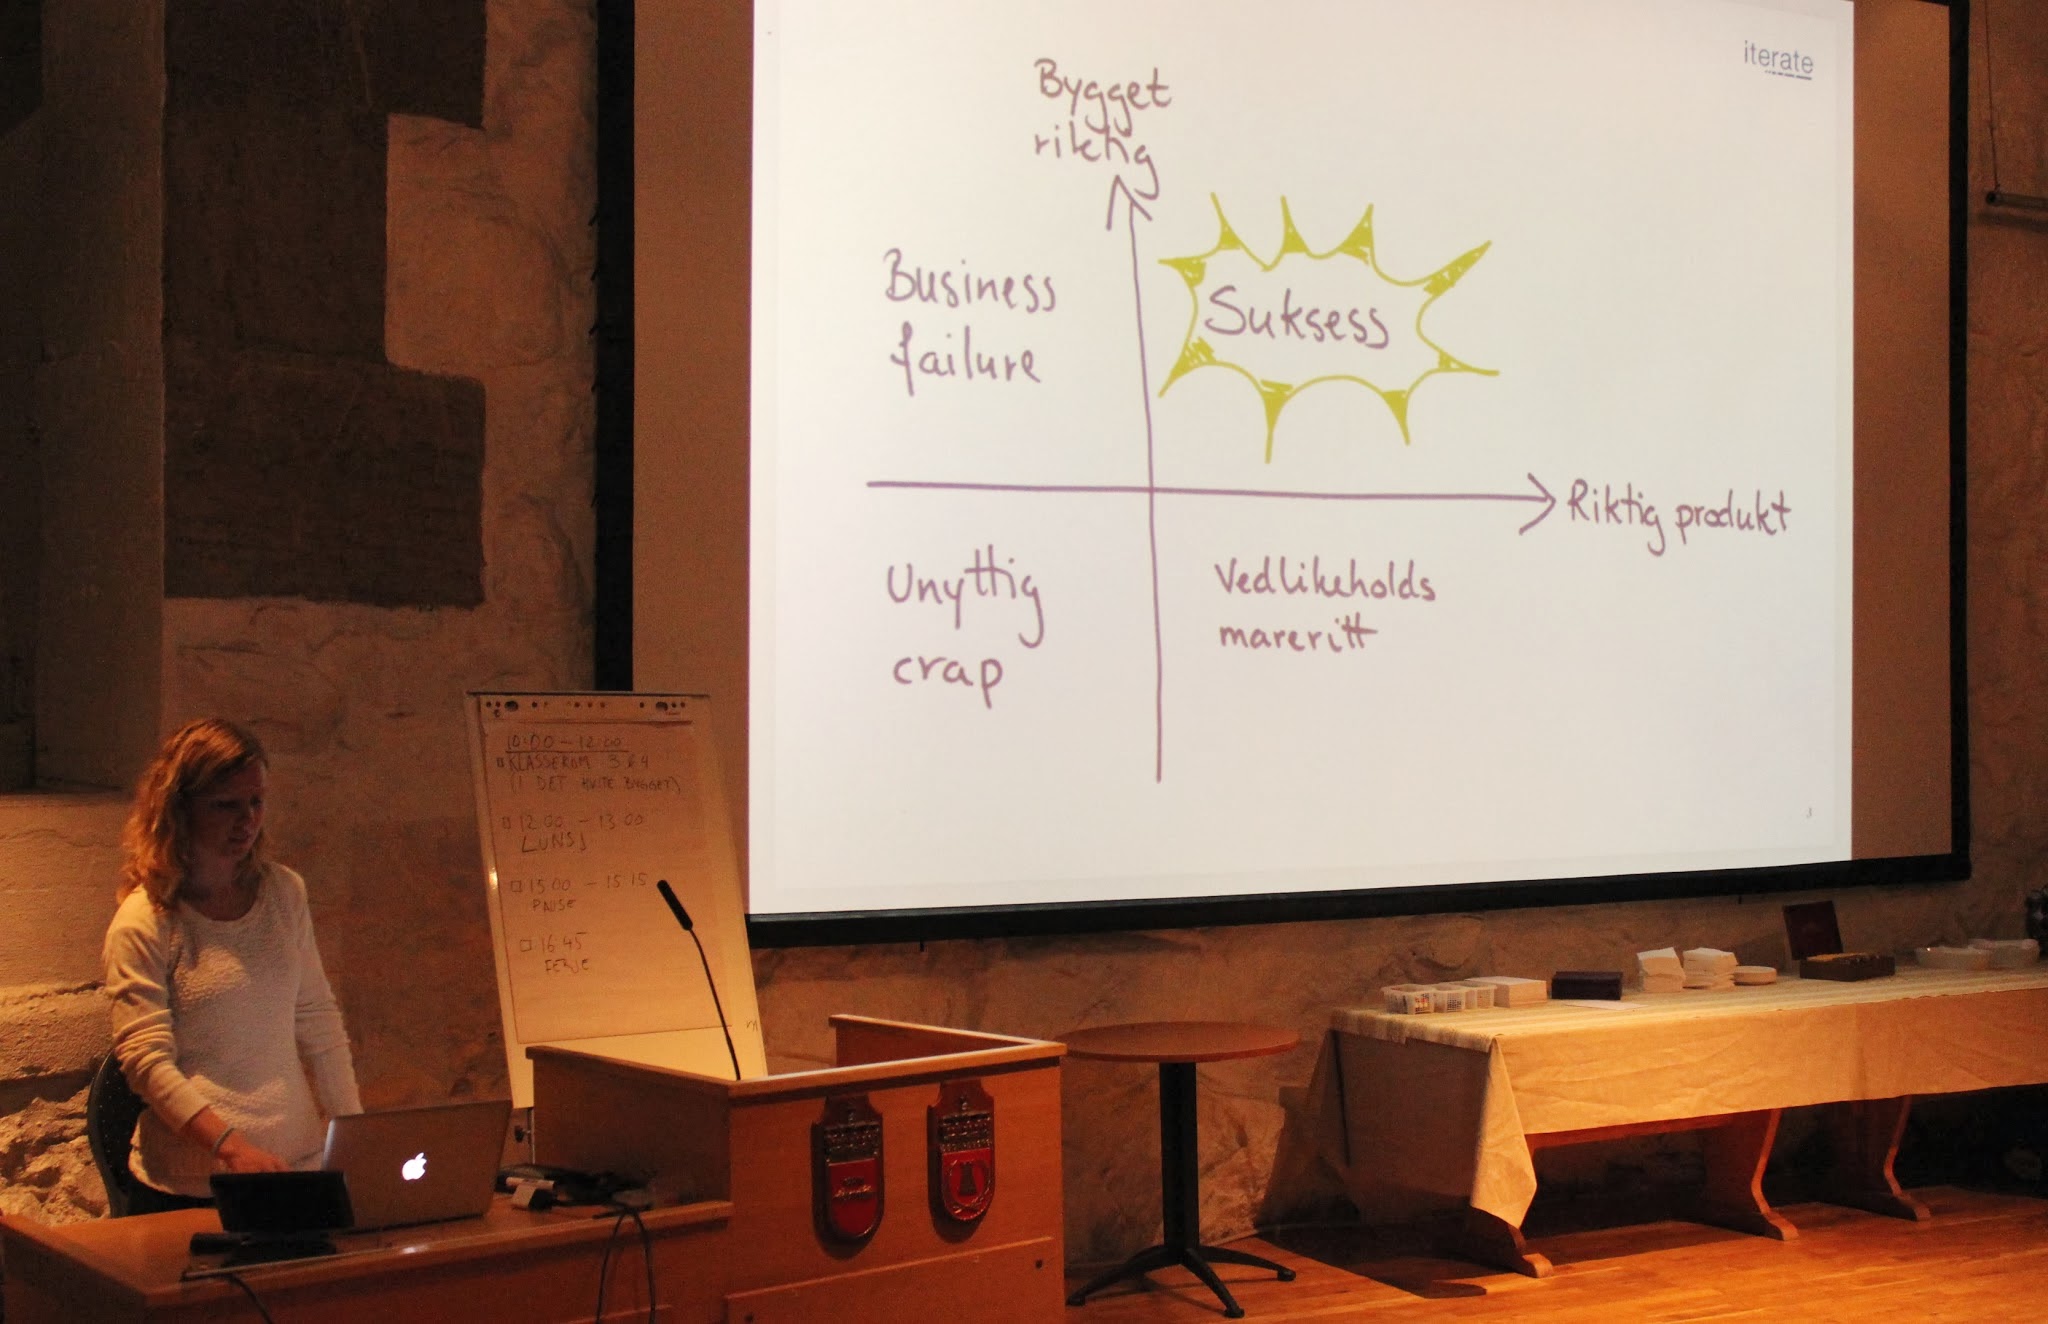 iterate
Bygget
riktig
Business
failure
Suksess
Riktig produkt
Unyttig
crap
Vedlikeholds
mareritt
10:00 - 12:00
KLASSEROM 3 & 4
(I DET HVITE BYGGET)
12:00 - 13:00
LUNSJ
15:00 - 15:15
PAUSE
16:45
FERJE